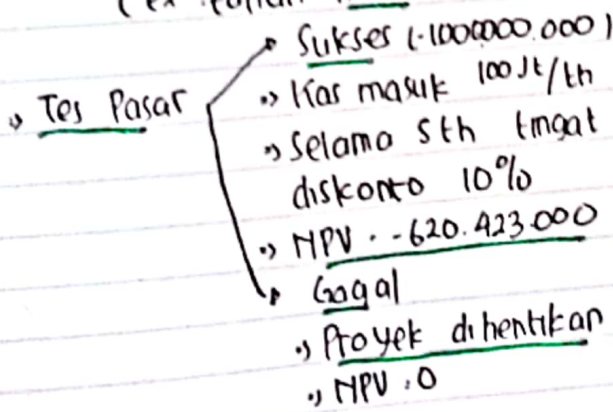 (ex
Sukses (-1000000.000)
→ Tes Pasar
→ Kas masuk 100Jt/th
→ Selama 5th tingat
diskonto 10%
→ NPV = -620.423.000
Gagal
→ Proyek dihentikan
→ NPV = 0